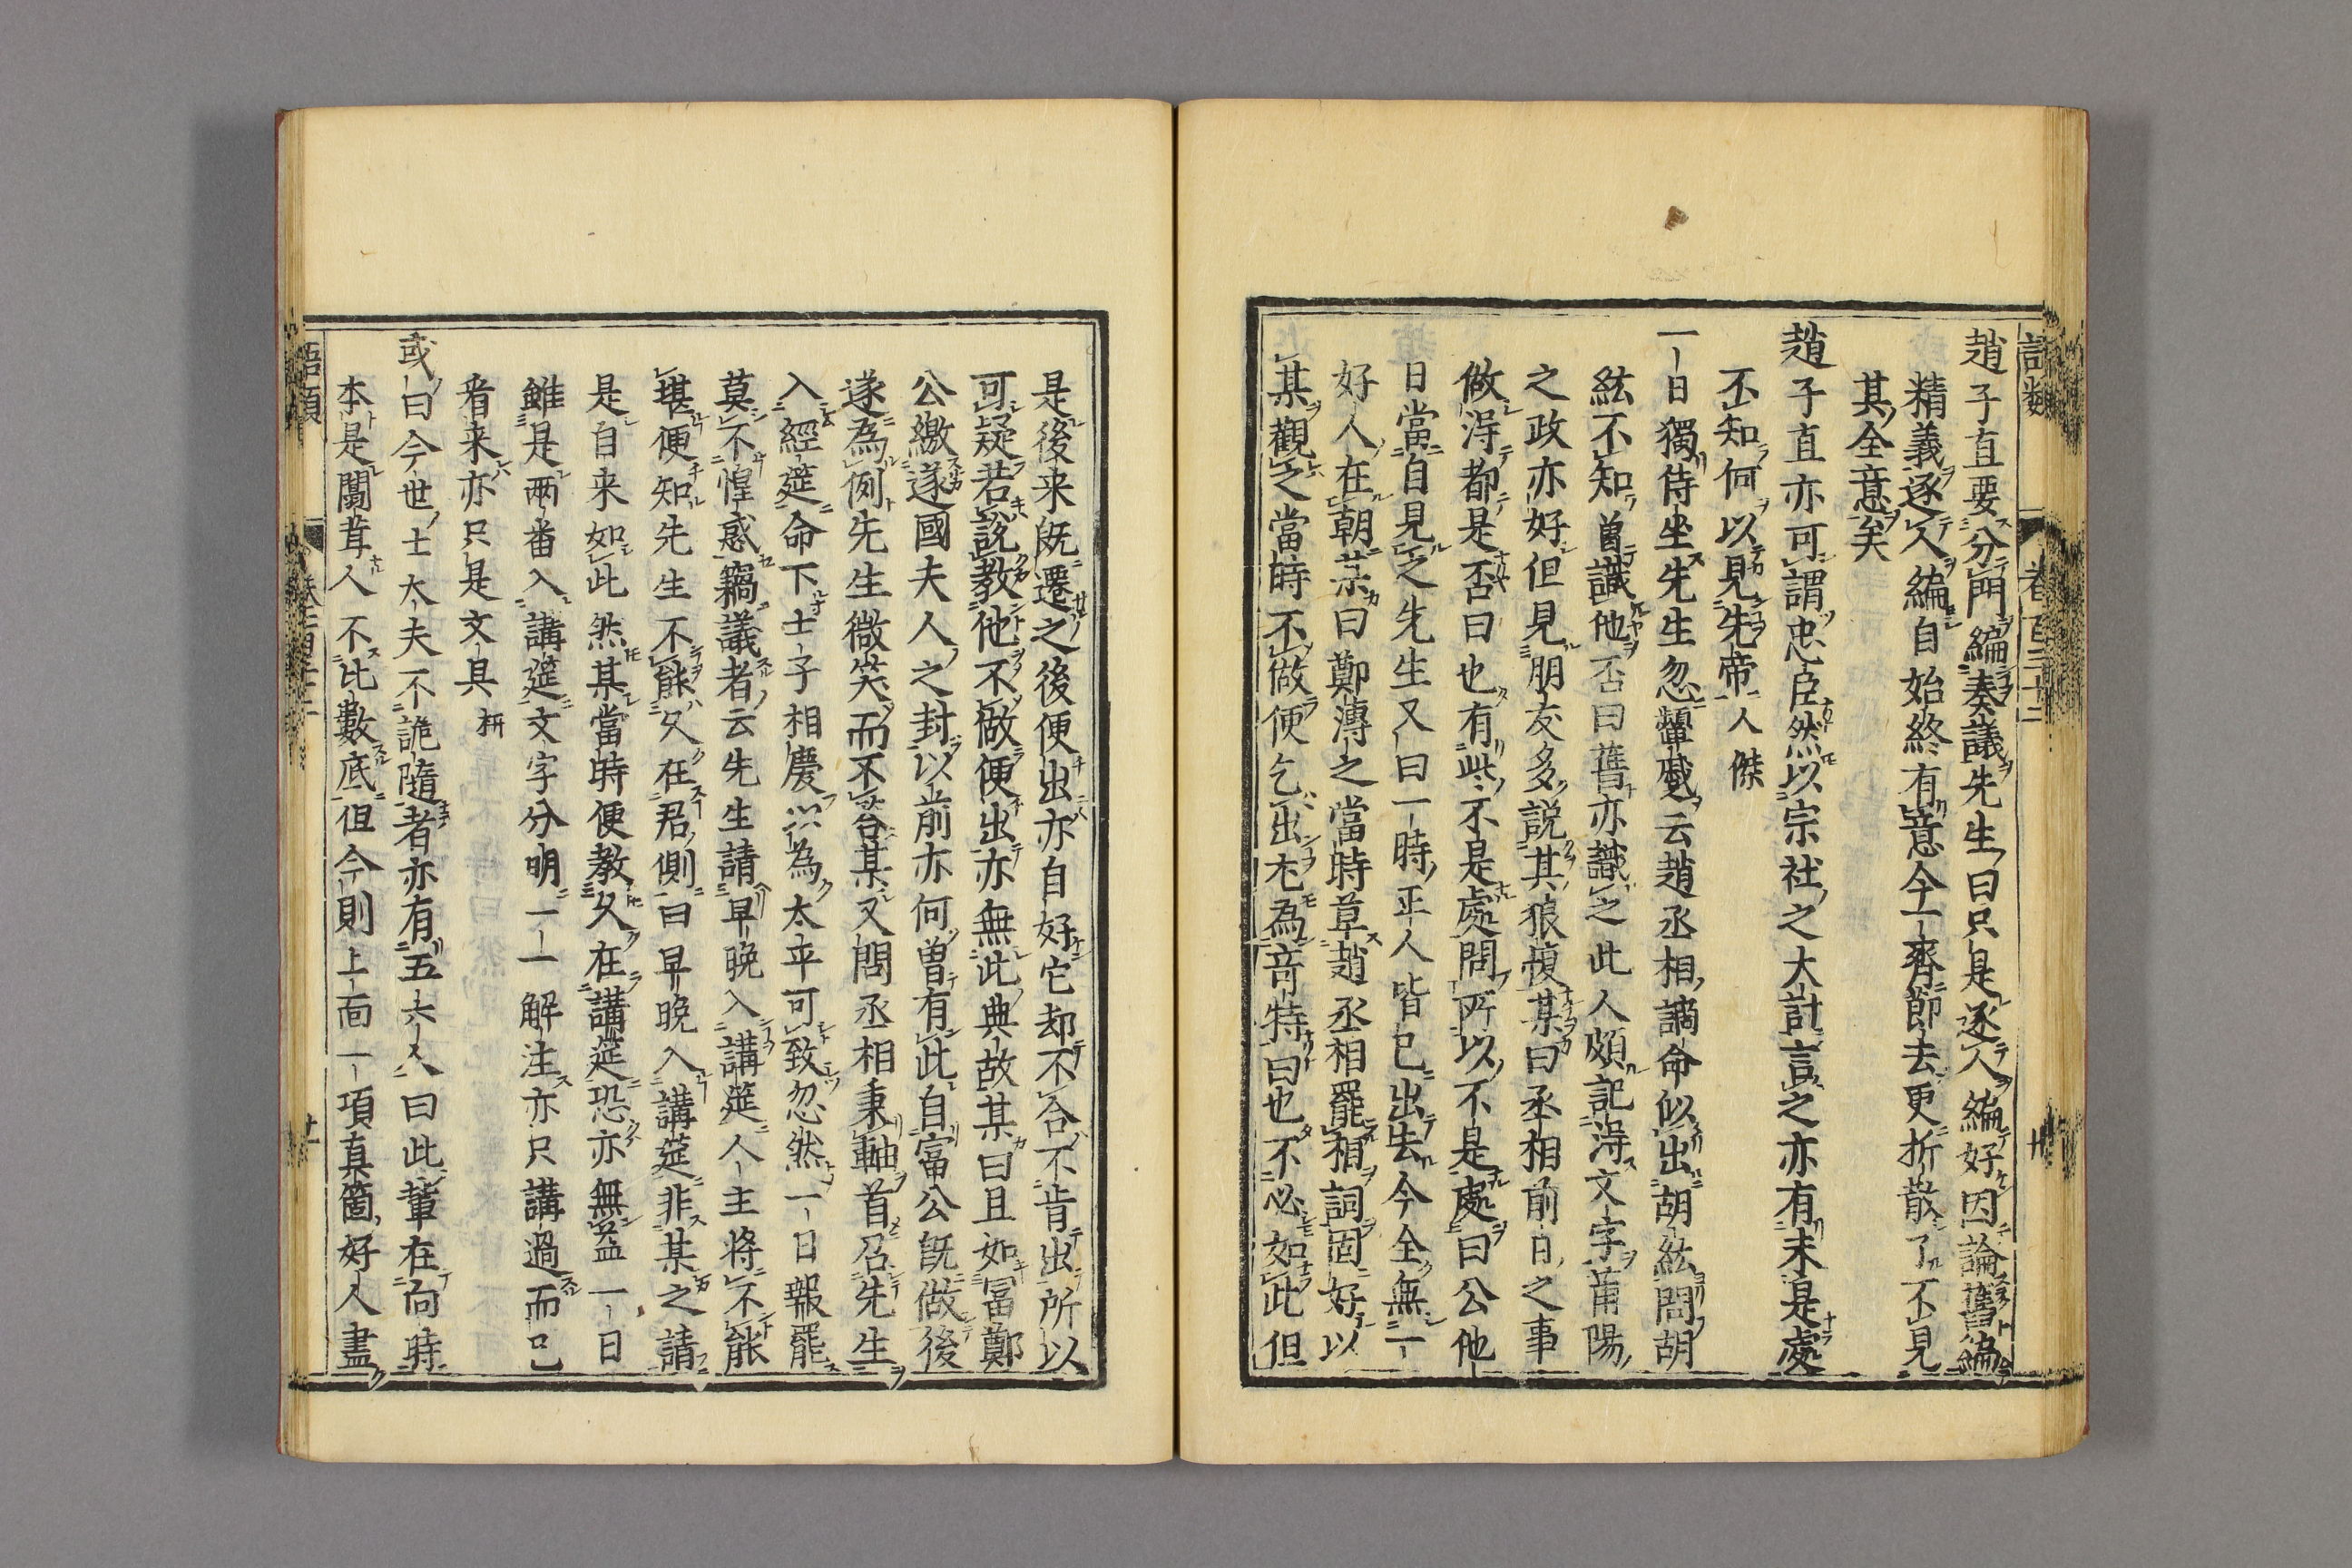 語類 卷百三十二
趙子直要分門編奏議先生曰只是逐人編好因論舊編
精義逐人編自始終有意今一齊節去更拆散了不見
其全意矣
趙子直亦可謂忠臣然以宗社之大計言之亦有未是處
不知何以見先帝人傑
一日獨侍坐先生忽顰蹙云趙丞相謫命似出胡紘問胡
紘不知曾識他否曰舊亦識之此人頗記得文字莆陽
之政亦好但見朋友多說其狼愎某曰丞相前日之事
做得都是否曰也有些不是處問所以不是處曰公他
日當自見之先生又曰一時正人皆已出去今全無一
好人在朝某曰鄭溥之當時草趙丞相罷相詞固好以
某觀之當時不做便乞出尤為奇特曰也不必如此但
是後来既遷之後便出亦自好它却不合不肯出所以
可疑若說教他不做便出亦無此典故某曰且如富鄭
公繳遂國夫人之封以前亦何曾有此自富公既做後
遂為例先生微笑而不荅某又問丞相秉軸首召先生
入經筵命下士子相慶以為太平可致忽然一日報罷
莫不惶惑竊議者云先生請早晚入講筵人主將不能
堪便知先生不能久在君側曰早晚入講筵非某之請
是自来如此然某當時便教久在講筵恐亦無益一日
雖是兩番入講筵文字分明一一解注亦只講過而已
看来亦只是文具枅
或曰今世士大夫不詭隨者亦有五六人曰此輩在向時
本是闒茸人不比數底但今則上面一項真箇好人盡
語類
廿一